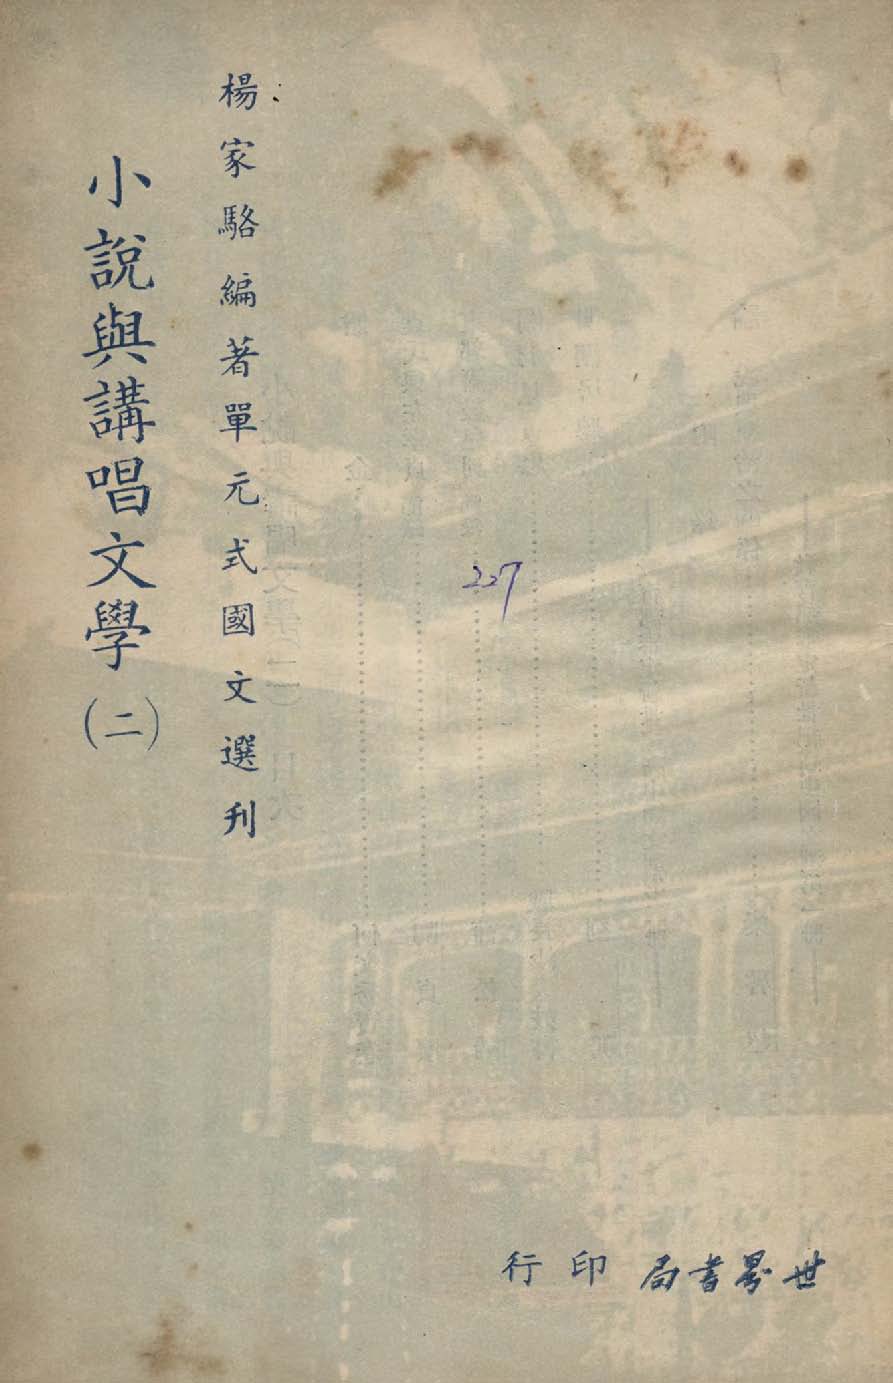 楊家駱編著單元式國文選刊
小說與講唱文學(二)
227
世界書局 印行